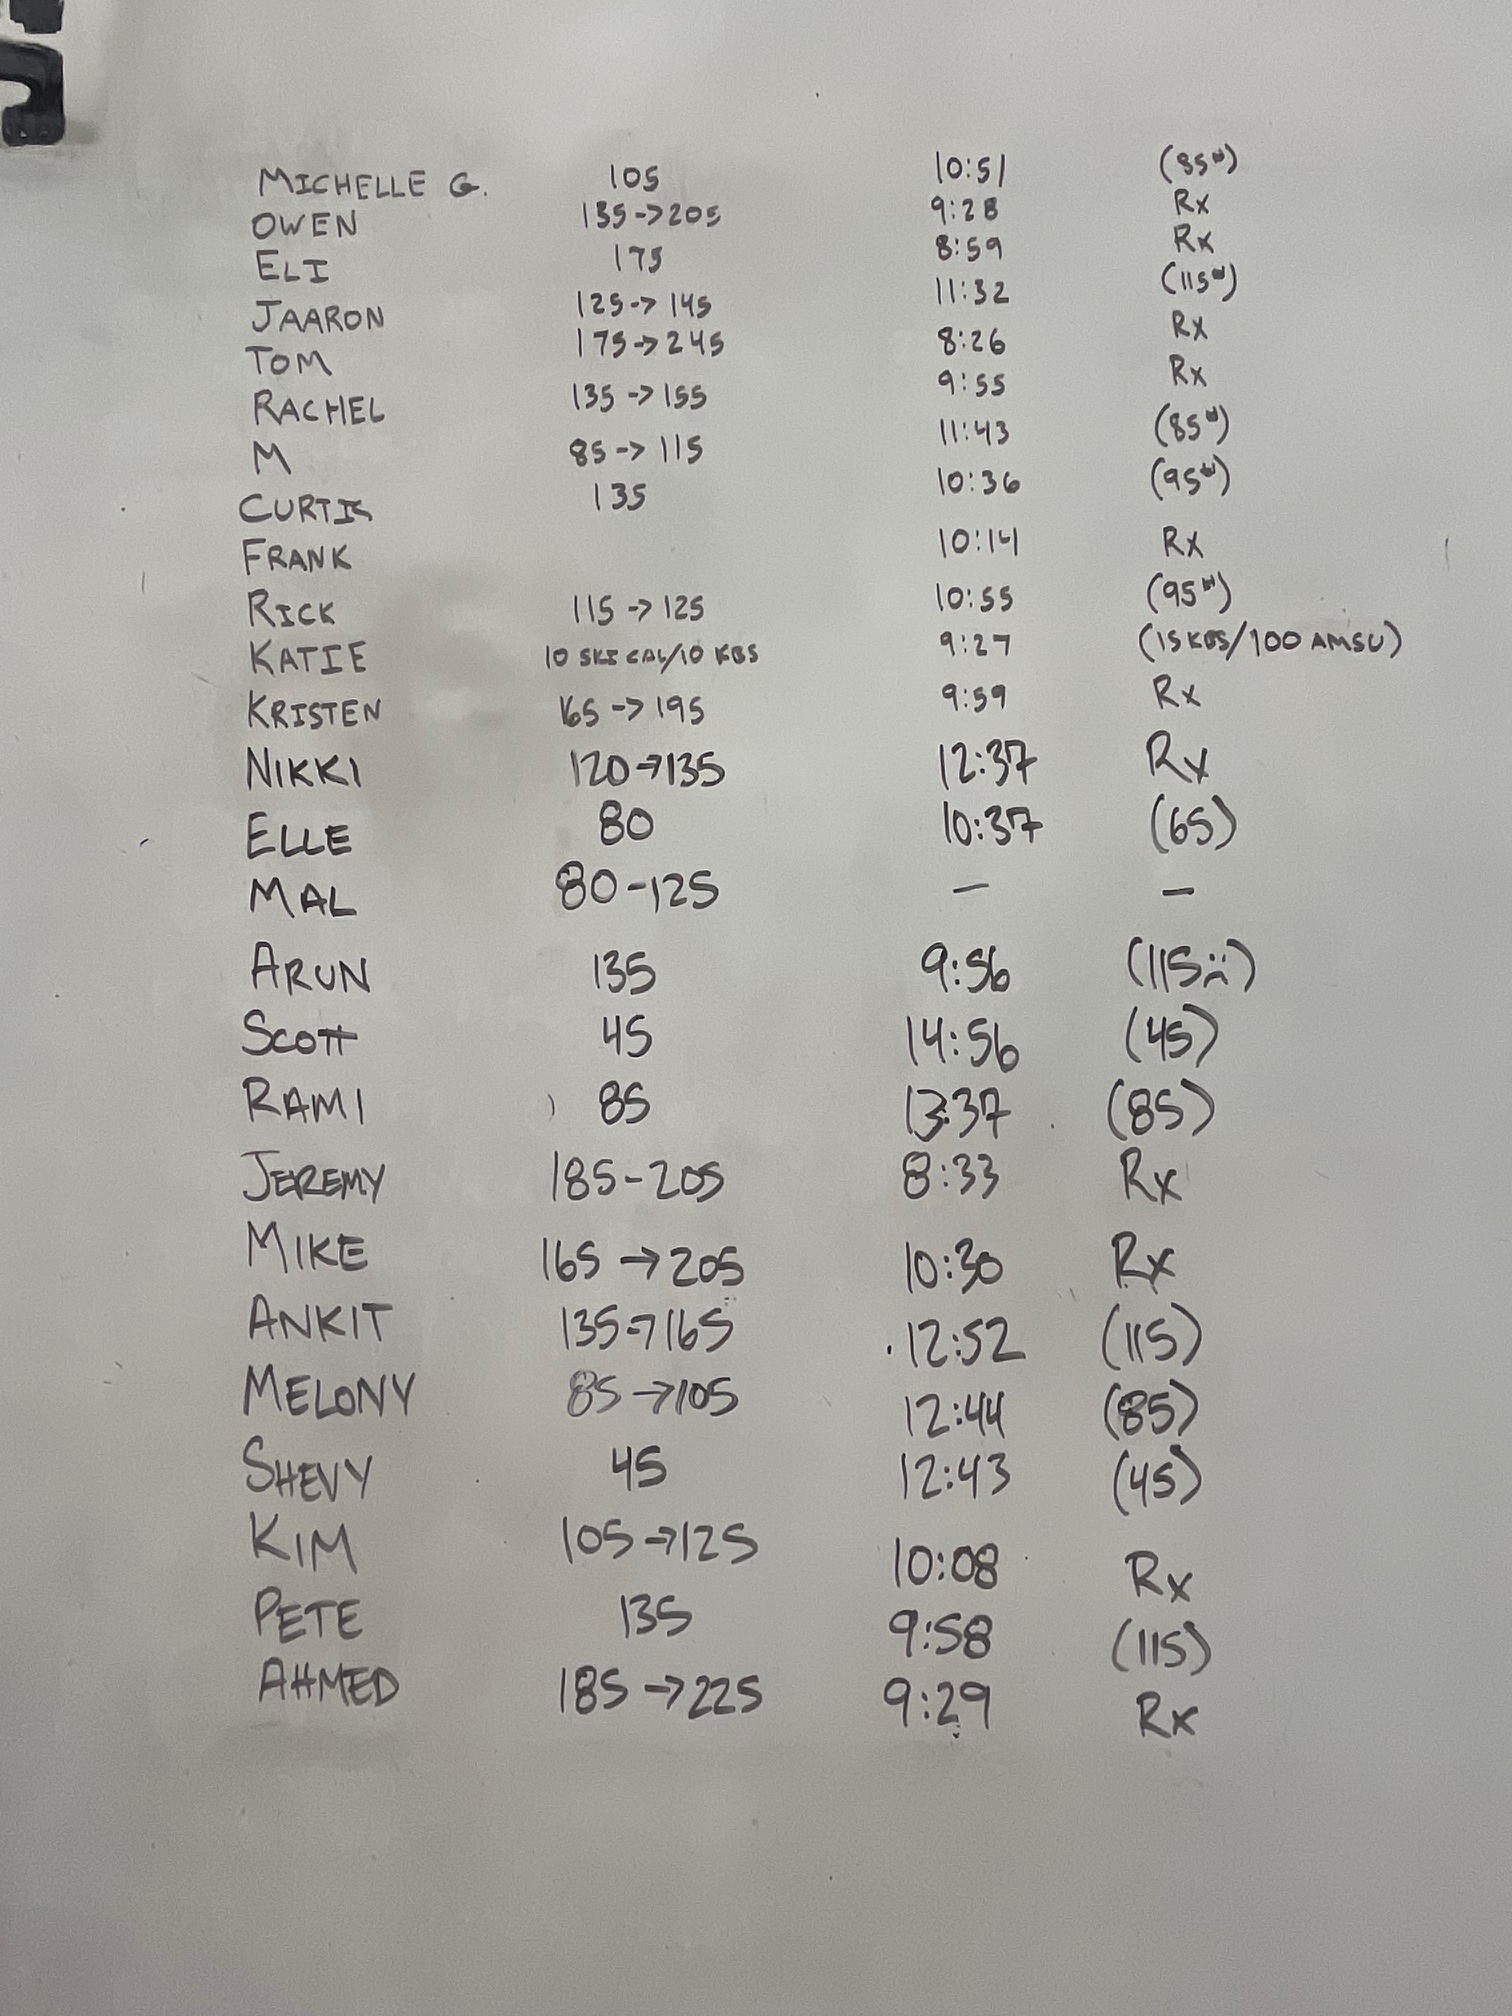 MICHELLE G. 105 10:51 (85#)
OWEN 135->205 9:28 Rx
ELI 175 8:59 Rx
JAARON 125->145 11:32 (115#)
TOM 175->245 8:26 Rx
RACHEL 135->155 9:55 Rx
M 85->115 11:43 (85#)
CURTIS 135 10:36 (95#)
FRANK 10:14 Rx
RICK 115->125 10:55 (95#)
KATIE 10 SKI CAL/10 KBS 9:27 (15 KBS/100 AMSU)
KRISTEN 165->195 9:59 Rx
NIKKI 120->135 12:37 Rx
ELLE 80 10:37 (65)
MAL 80-125 — —
ARUN 135 9:56 (115 :()
SCOTT 45 14:56 (45)
RAMI 85 13:37 (85)
JEREMY 185-205 8:33 Rx
MIKE 165->205 10:30 Rx
ANKIT 135->165 12:52 (115)
MELONY 85->105 12:44 (85)
SHEVY 45 12:43 (45)
KIM 105->125 10:08 Rx
PETE 135 9:58 (115)
AHMED 185->225 9:29 Rx